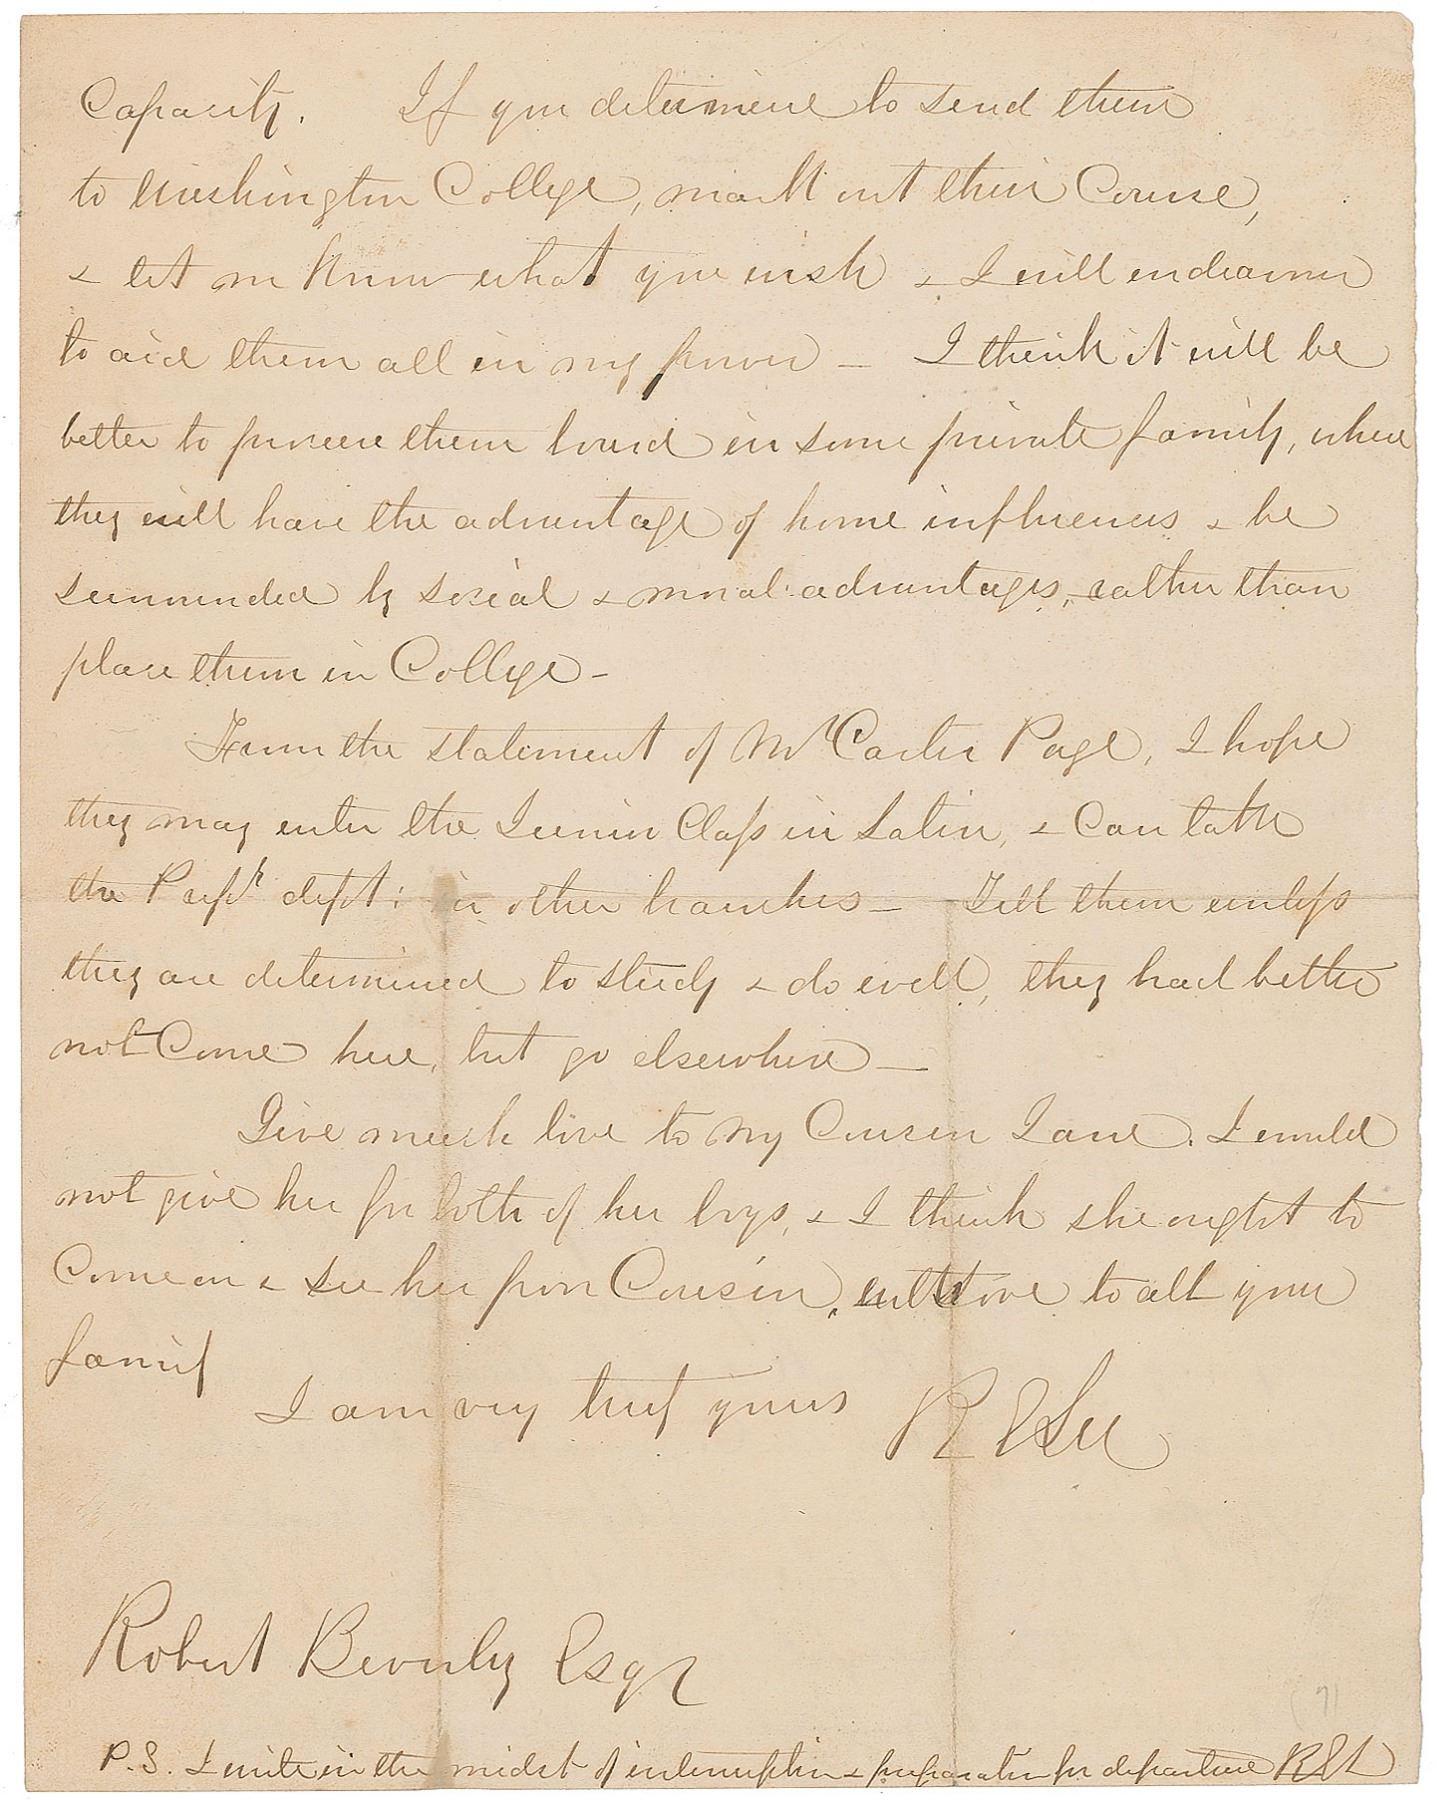 Capacity. If you determine to send them
to Washington College, mark out their Course,
& let me Know what you wish & I will endeavour
to aid them all in my power — I think it will be
better to procure them board in some private family, where
they will have the advantage of home influences & be
surrounded by social & moral advantages, rather than
place them in College —
From the statement of Mr Carter Page, I hope
they may enter the Junior Class in Latin, & Can take
the Prepr dept: in other branches — Tell them unless
they are determined to study & do well, they had better
not Come here, but go elsewhere —
Give much love to my Cousin Jane. I would
not give her for both of her boys, & I think she ought to
Come on & see her poor Cousin, with love to all your
family
I am very truly yours R E Lee
Robert Beverly Esqr
P.S. I write in the midst of interruption & preparation for departure REL